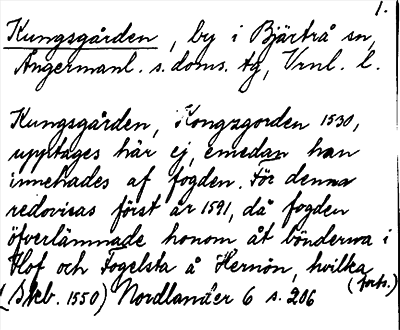 1.
Kungsgården, by i Bjärtrå sn,
Ångermanl. s. doms. tg, Vrnl. l.
Kungsgården, Kongzgorden 1530,
upptages här ej, emedan han
innehades af fogden. För denna
redovisas först år 1591, då fogden
öfverlämnade honom åt bönderna i
Hof och Fogelsta å Hernön, hvilka
(Skb. 1550) Nordlander 6 s. 206 (forts.)